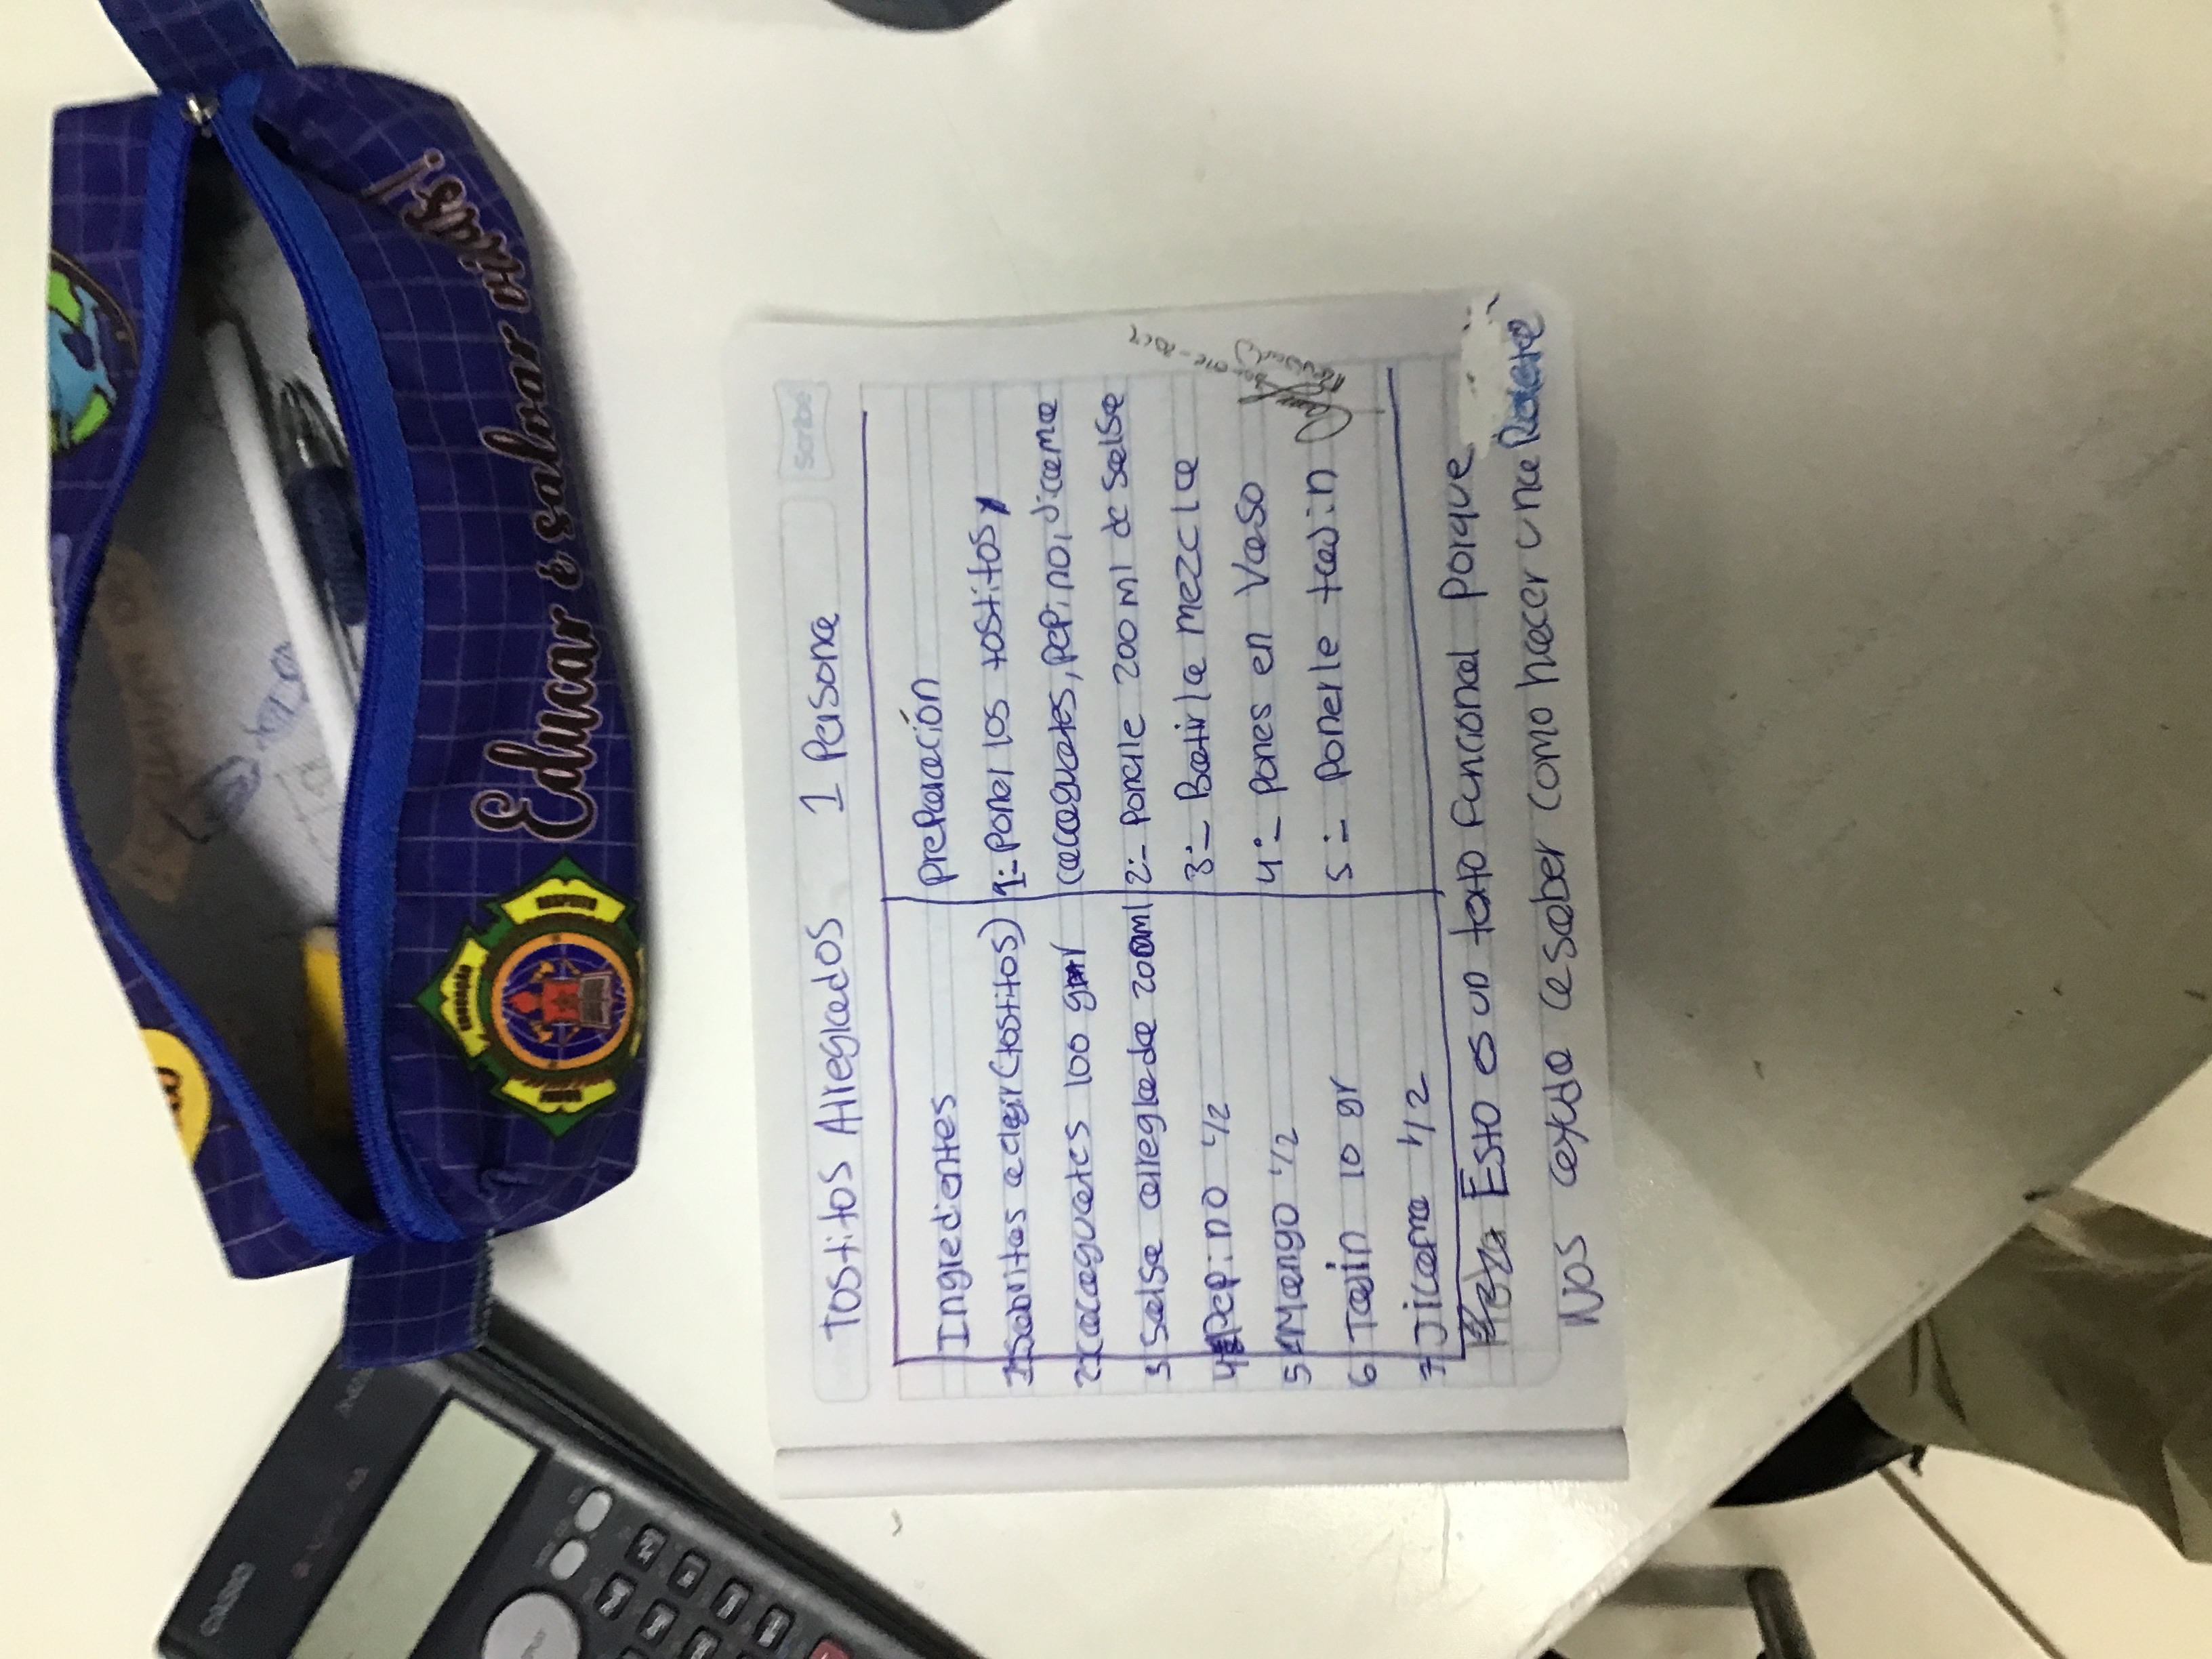 Educar é salvar vidas!
CASIO
Scribe
Tostitos Arreglados 1 Persona
Ingredientes
1 Sabritas a elegir (tostitos)
2 cacaguates 100 gr
3 Salsa arreglada 200ml
4 Pepino 1/2
5 Mango 1/2
6 Tajin 10 gr
7 Jicama 1/2
Preparación
1:- Poner los tostitos,
cacaguates, pepino, jicama
2:- Ponerle 200 ml de salsa
3:- Batir la mezcla
4:- Pones en Vaso
5:- Ponerle tajin
Esto es un texto funcional porque
Nos ayuda a saber como hacer una Receta